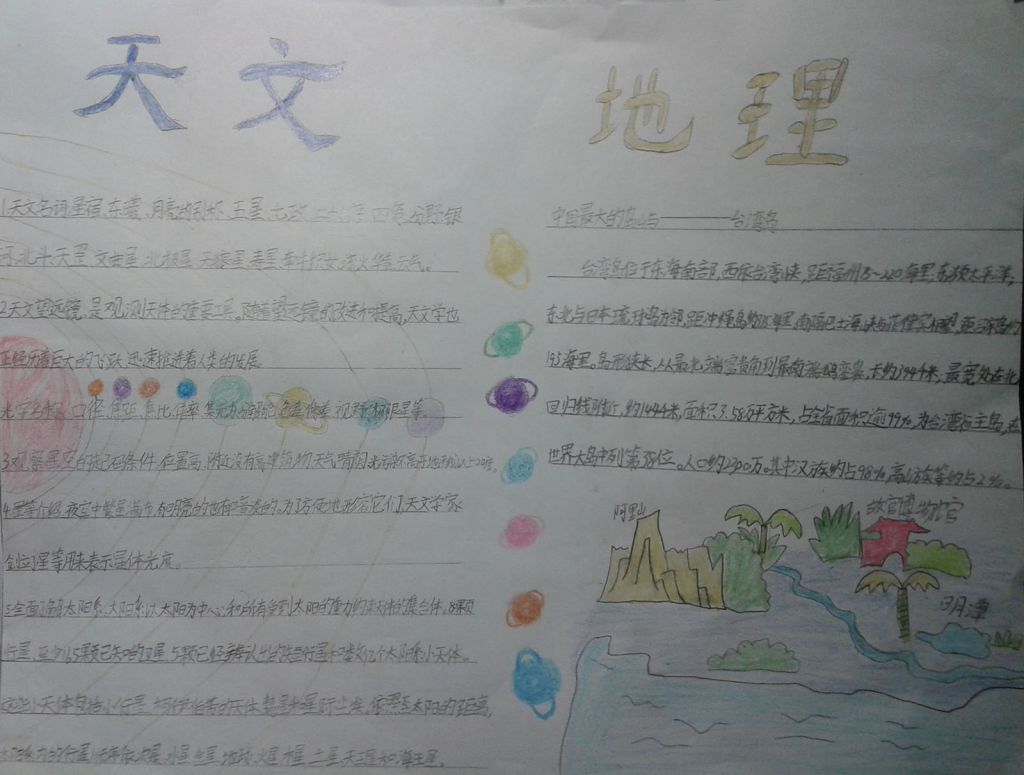 天文
地理
1天文名词:星宿、东曦、月亮的别称、五星、七政、二十八宿、四象、分野、银
河、北斗、天罡、文曲星、北极星、天狼星、寿星、牵牛织女、流火、节气。
2天文望远镜,是观测天体的重要工具。随着望远镜的改进和提高,天文学也
正经历着巨大的飞跃,迅速推进着人类的发展
光学名称:口径、焦距、焦比、倍率、集光力、视场、极限星等。
3观察星空台徒石条件:位置高、附近没有高建筑物、天气晴朗、光污染不高
4.星等介绍,夜空中繁星满布,有明亮的也有昏暗的。为了方便地形容它们,天文学家
创立了星等用来表示星体光度。
5全面了解太阳系:太阳系以太阳为中心,和所有受到太阳的重力约束天体的集合体,8颗
行星、至少165颗已知的卫星、5颗已经辨认出的矮行星和数以亿计太阳系小天体。
这些小天体包括小行星、柯伊伯带的天体、彗星和星际尘埃。依照至太阳的距离,
太阳系内的行星依序次是:水星、金星、地球、火星、木星、土星、天王星和海王星。
中国最大的岛屿———台湾岛
台湾岛位于东海南部,西依台湾海峡,距福州海里,东频太平洋,
东北与日本琉球岛为邻,距冲绳岛约海里,南隔巴士海峡与菲律宾相望,距
195海里。岛形狭长,从最北端富贵角到最南端鹅銮鼻,长约394千米,最宽处在北
回归线附近,约144千米,面积3.58万平方米,占全省面积逾99%,为台湾的主岛,在
世界大岛中列第38位。人口约2300万。其中汉族约占98%,高山族等约占2%。
阿里山
故宫博物院
日月潭